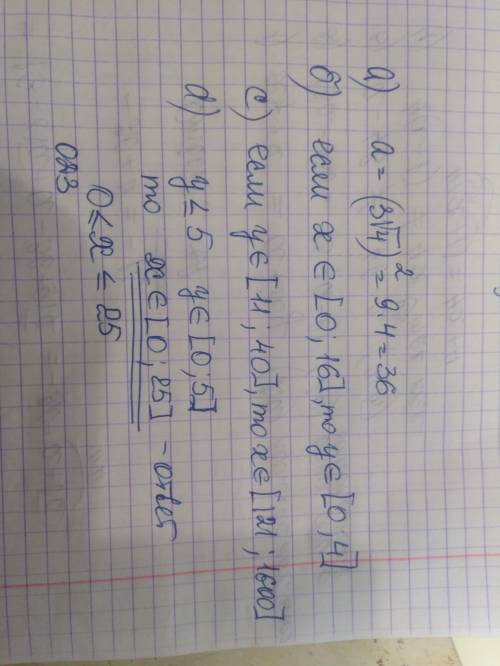 а) a = (3√4)² = 9·4 = 36
б) если x ∈ [0; 16], то y ∈ [0; 4]
c) если y ∈ [11; 40], то x ∈ [121; 1600]
d) y ≤ 5 y ∈ [0; 5]
то x ∈ [0; 25] – ответ
0 ≤ x ≤ 25
ОДЗ